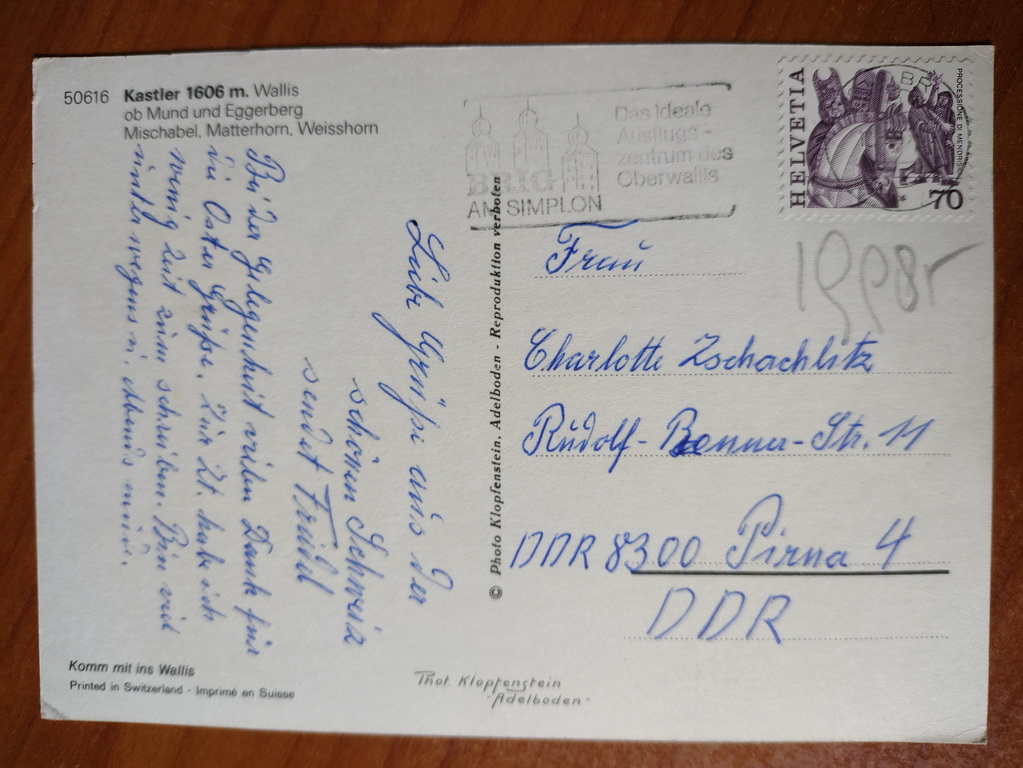 50616 Kastler 1606 m. Wallis
ob Mund und Eggerberg
Mischabel, Matterhorn, Weisshorn
BRIG
AM SIMPLON
Das ideale
Ausflugs-
zentrum des
Oberwallis
HELVETIA
PROCESSIONE DI MENDRISIO
70
Liebe Grüße aus der
schönen Schweiz
sendet Freidel
Bei der Gelegenheit vielen Dank für
die Oster Grüße. Zur Zt. habe ich
wenig Zeit zum schreiben. Bin viel
unterwegens u. Abends müde.
© Photo Klopfenstein, Adelboden - Reproduktion verboten
Frau
Charlotte Zschachlitz
Rudolf-Renner-Str. 11
DDR 8300 Pirna 4
DDR
Komm mit ins Wallis
Printed in Switzerland · Imprimé en Suisse
Phot. Klopfenstein
-Adelboden-